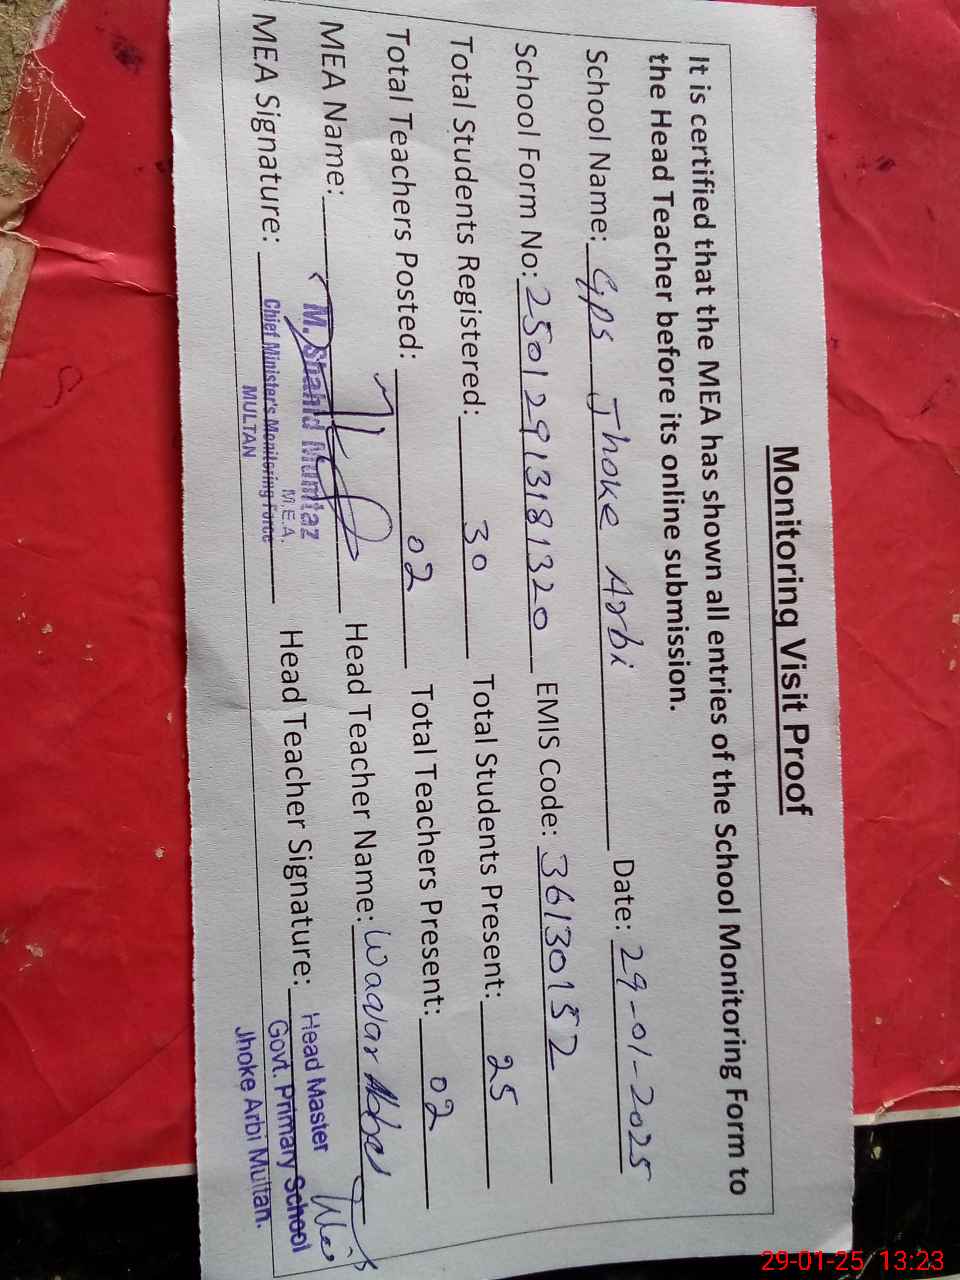 Monitoring Visit Proof
It is certified that the MEA has shown all entries of the School Monitoring Form to
the Head Teacher before its online submission.
School Name: Gps Jhoke Arbi Date: 29-01-2025
School Form No: 25012913181320 EMIS Code: 36130152
Total Students Registered: 30 Total Students Present: 25
Total Teachers Posted: 02 Total Teachers Present: 02
MEA Name: M. Shahid Mumtaz Head Teacher Name: Waqar
M.E.A.
MEA Signature: Chief Minister's Monitoring Force Head Teacher Signature:
MULTAN
Head Master
Govt. Primary School
Jhoke Arbi Multan.
29-01-25 13:23